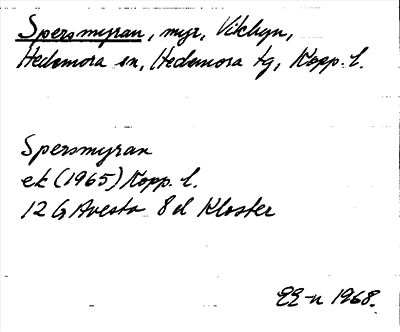 Spersmyran, myr, Vikbyn,
Hedemora sn, Hedemora tg, Kopp. l.
Spersmyran
ek (1965) Kopp. l.
12 G Avesta 8 d Kloster
EE-n 1968.